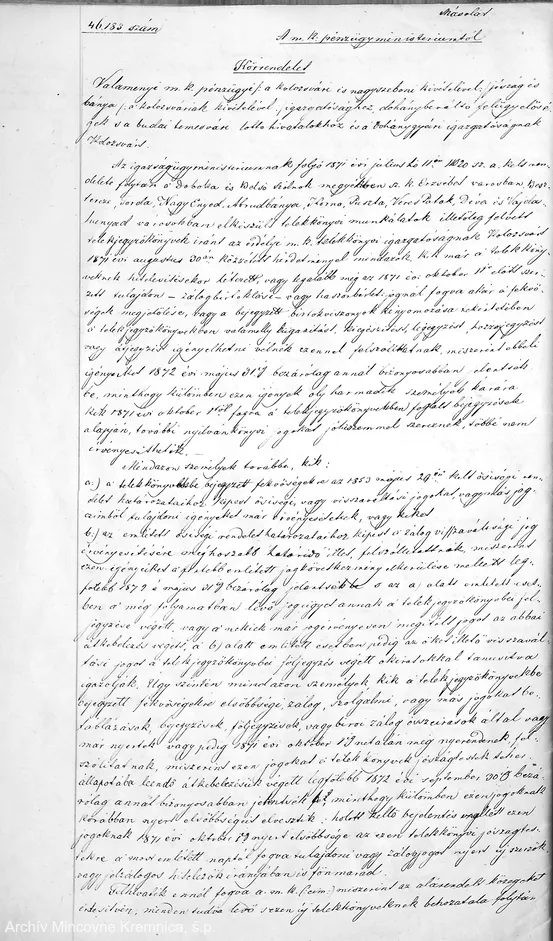 Másolat
46,133 szám
A m. k. pénzügyministeriumtól
Körrendelet
Valamenyi m. k. pénzügyi /: a kolozsvári és nagyszebeni kivételével :/ jószág és
bánya /: a kolozsvárinak kivételével :/ igazgatósághoz, dohánybeváltó felügyelősé
gek s a budai temesvári lotto hivatalokhoz és a dohánygyári igazgatóságnak
Kolozsvárt.
Az igazságügyministeriumnak folyó 1871 évi julius hó 11én sz. a. kelt ren
delete folytán a Doboka és Belső Szolnok megyékben sz. k. Erzsébet városban, Besz
tercze, Torda, Nagy Enyed, Abrudbánya, Vörös Patak, Déva és Vajda
hunyad városokban elkészült telekkönyvi munkálatok illetőleg felvett
telekjegyzőkönyvek iránt az erdélyi m. k. telekkönyvi igazgatóságnak Kolozsvárt
1871 évi augustus 30án közzétett hirdetményei mindazok kik már a telekköny
veknek hitelesítésekor létezett, vagy legalább még az 1871 évi október 1ső előtt szer
zett tulajdon – zálog – vagy haszonbérleti jognál fogva akár a fekvő
ségek megjelölése, vagy a bejegyzett birtokviszonyok tekintetében
a telekjegyzőkönyvekben valamely kiigazítást, kiegészítést, lejegyzést, hozzájegyzést
vagy átjegyzést igényelhetni vélnek ezennel felszólíttatnak, miszerint ebbeli
igényeiket 1872 évi május 31ig bezárólag annál bizonyosabban jelentsék
be, minthogy különben ezen igények oly harmadik személyek kárára
kik 1871 évi október 1től fogva a telekjegyzőkönyvekben foglalt bejegyzések
alapján, további nyilvánkönyvi jogokat jóhiszemmel szereznek, többé nem
érvényesíthetők. –
Mindazon személyek továbbá, kik:
a.) a telekkönyvekbe bejegyzett fekvőségekre az 1853 május 29én kelt ősiségi ren
delet határozataihoz képest ősiségi, vagy visszaváltási jogokat, vagy más jog
czímből tulajdoni igényeket már érvényesítettek, vagy kiket
b.) az említett ősiségi rendelet határozataihoz képest a zálog visszaváltási jog
érvényesítésére meghosszabb határidő illet, felszólíttatnak, miszerint
ezen igényeiket a fentebb említett jogkövetkezmény elkerülése mellett leg
fölebb 1872 május 31ig bezárólag jelentsék be s az a) alatt említett eset
ben a még folyamatban levő jogügyet annak a telekjegyzőkönyvbei fel
jegyzése végett, vagy a nekiek már jogérvényesen megítélt jogot az abbai
átkebelezés végett, a b) alatt említett esetben pedig az őket illető visszavál
tási jogot a telekjegyzőkönyvbei följegyzés végett okiratokkal tanusítva
igazolják. Úgy szintén mindazon személyek, kik a telekjegyzőkönyvekbe
bejegyzett fekvőségekre elsőbbségi, zálog, szolgalmi, vagy más jogokat be
táblázások, bejegyzések, följegyzések, vagy bírói zálog összeírások által vagy
már nyertek vagy pedig 1871 évi október 1ig netalán még nyerendenek, fel
szólíttatnak, miszerint ezen jogokat a telekkönyvek
állapotába leendő átkebelezésük végett legfölebb 1872 évi september 30ig bezá
rólag annál bizonyosabban jelentsék be, minthogy különben ezen jogoknak
korábban nyert elsőbbségük elvesztik: holott kellő bejelentés mellett ezen
jogoknak 1871 évi október 1ig nyert elsőbbsége az ezen telekkönyvi jószágtes
tekre a most említett naptól fogva tulajdoni vagy zálogjogot nyert új szerzők,
vagy jelzálogos hitelezők irányában is fön marad.
Felhivatik ennél fogva a m. k. (czím) miszerint az alárendelt közegeket
értesítvén, minden tudva levő s ezen új telekkönyveknek behozatala folytán
Archív Mincovne Kremnica, š.p.